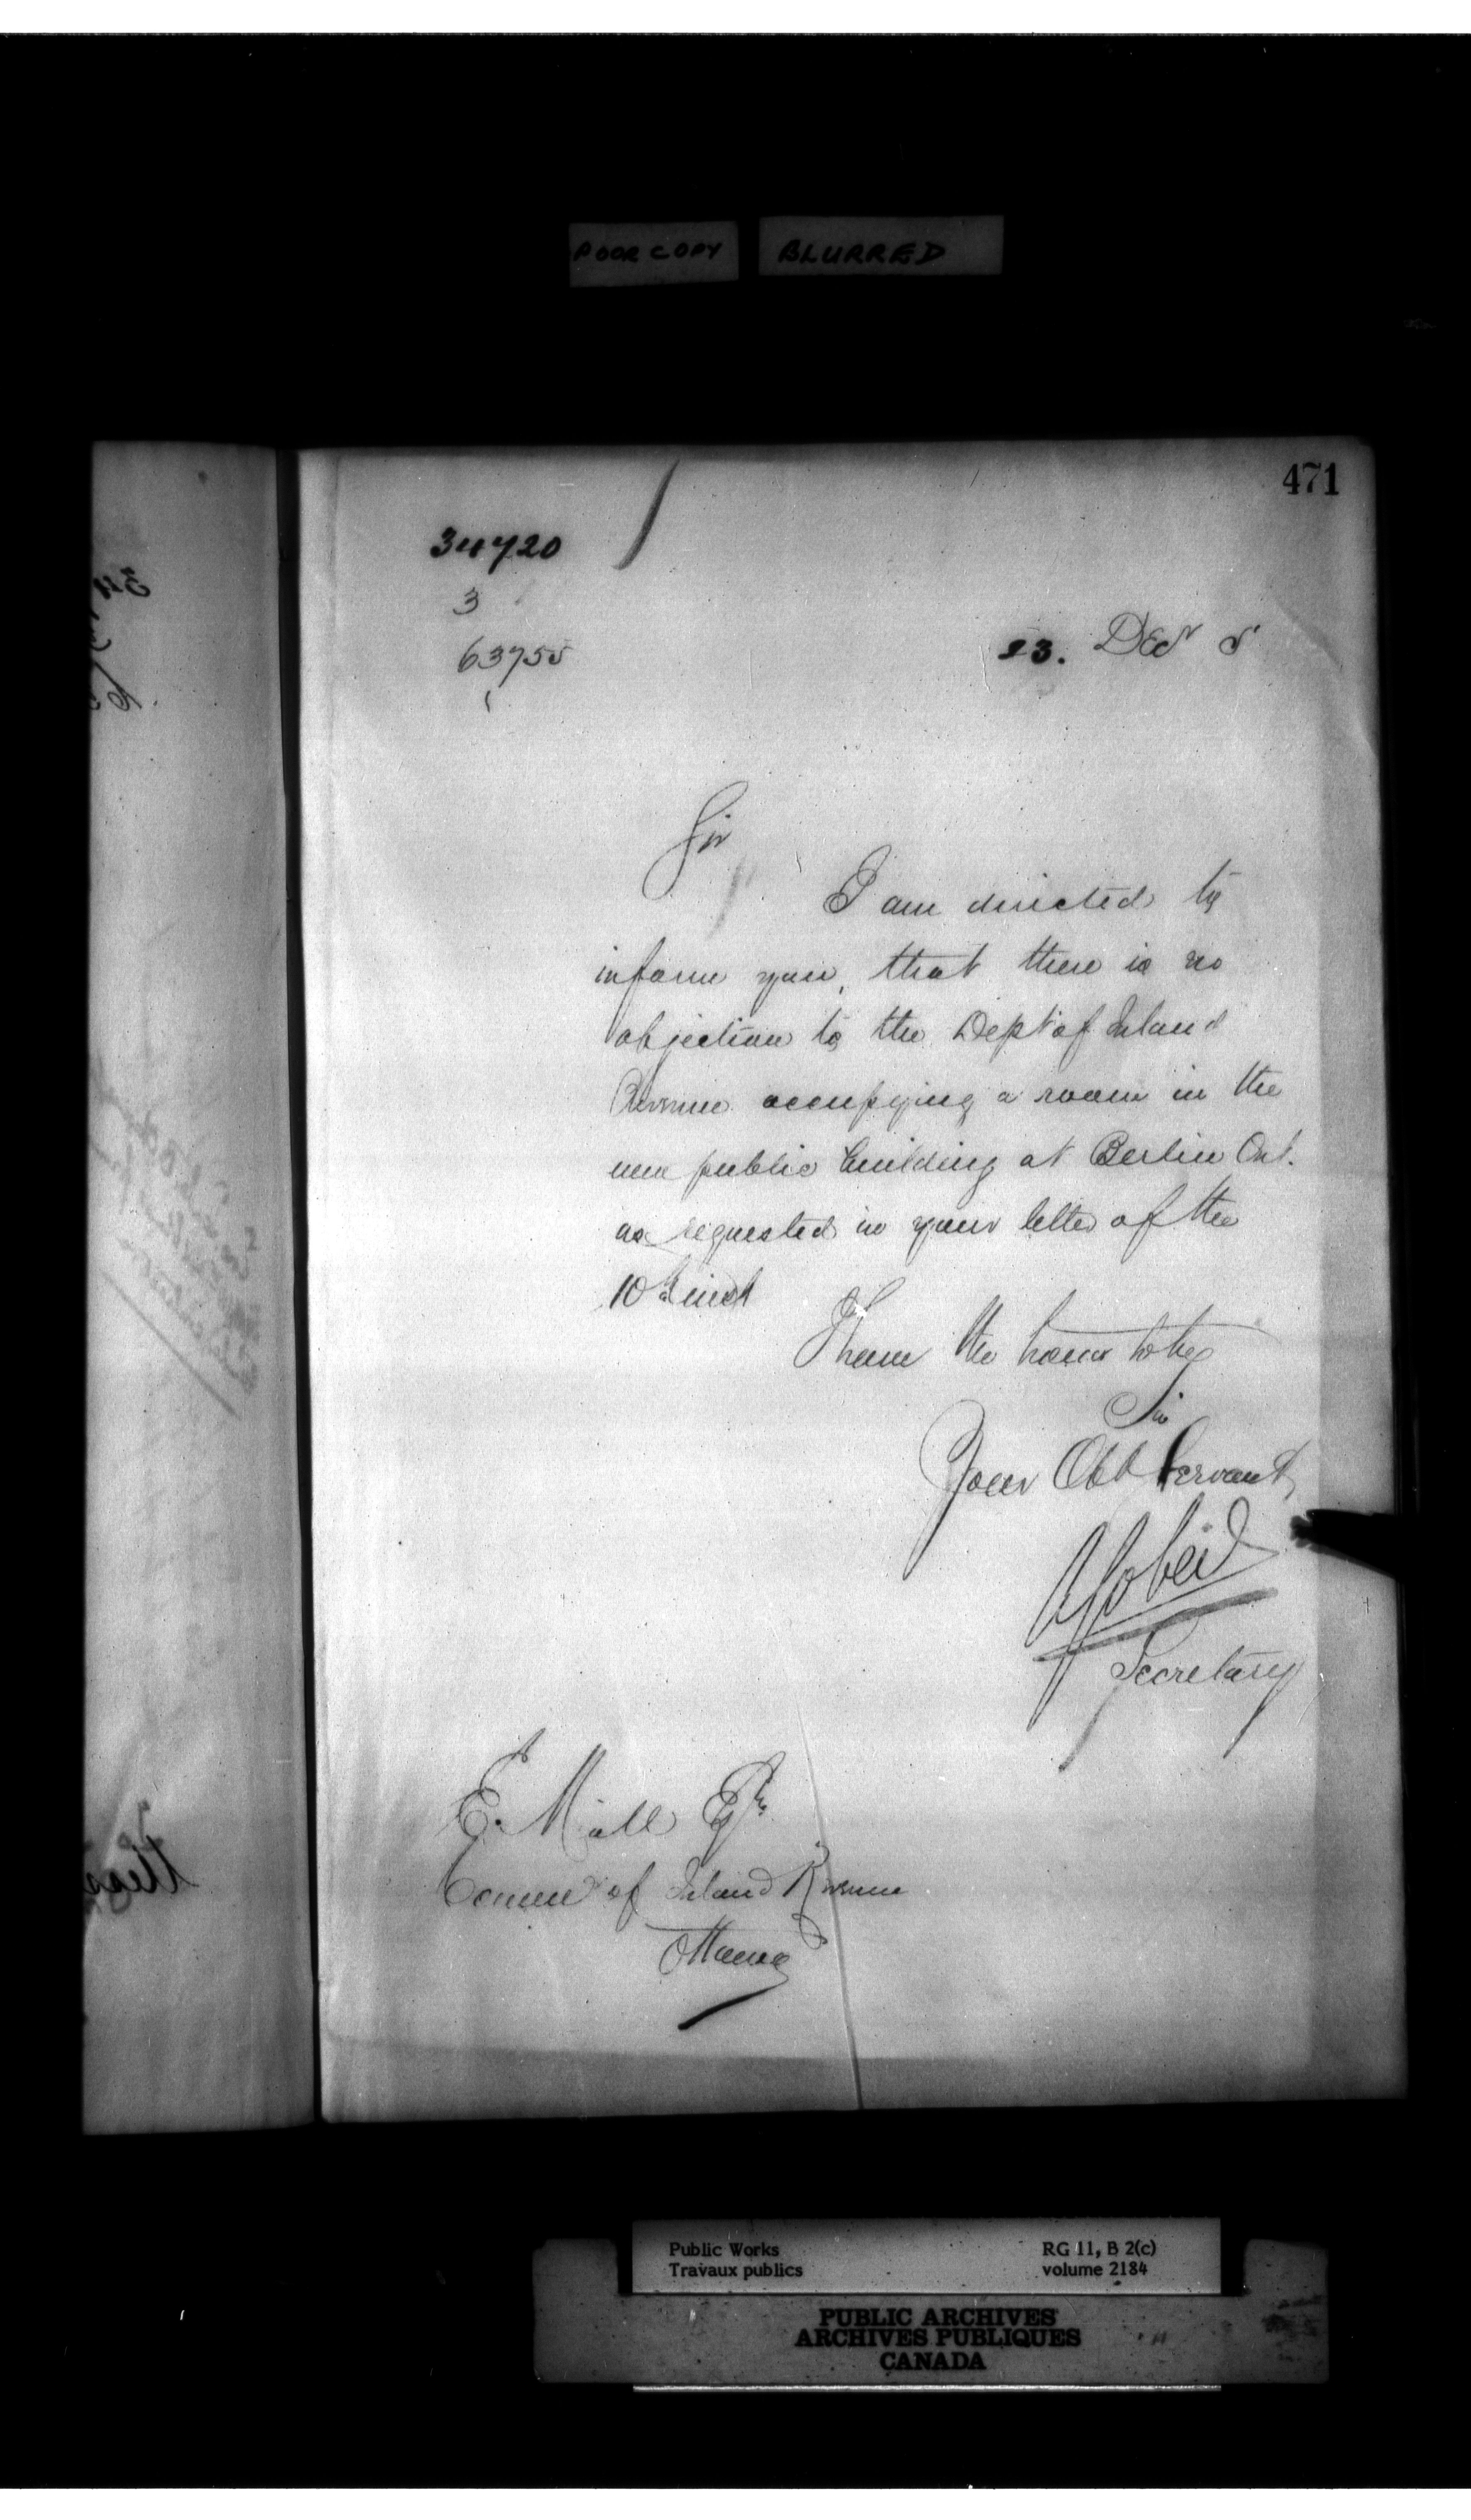 POOR COPY BLURRED
471
34720
3
63755
1
23. Decr 5
Sir
I am directed to
inform you, that there is no
objection to the Dept of Inland
Revenue occupying a room in the
new public building at Berlin Ont.
as requested in your letter of the
10th inst
I have the honor to be
Sir
Your Obt Servant,
Gobeil
Secretary
E. Miall Esqre
Commr of Inland Revenue
Ottawa
Public Works RG 11, B 2(c)
Travaux publics volume 2184
PUBLIC ARCHIVES
ARCHIVES PUBLIQUES
CANADA